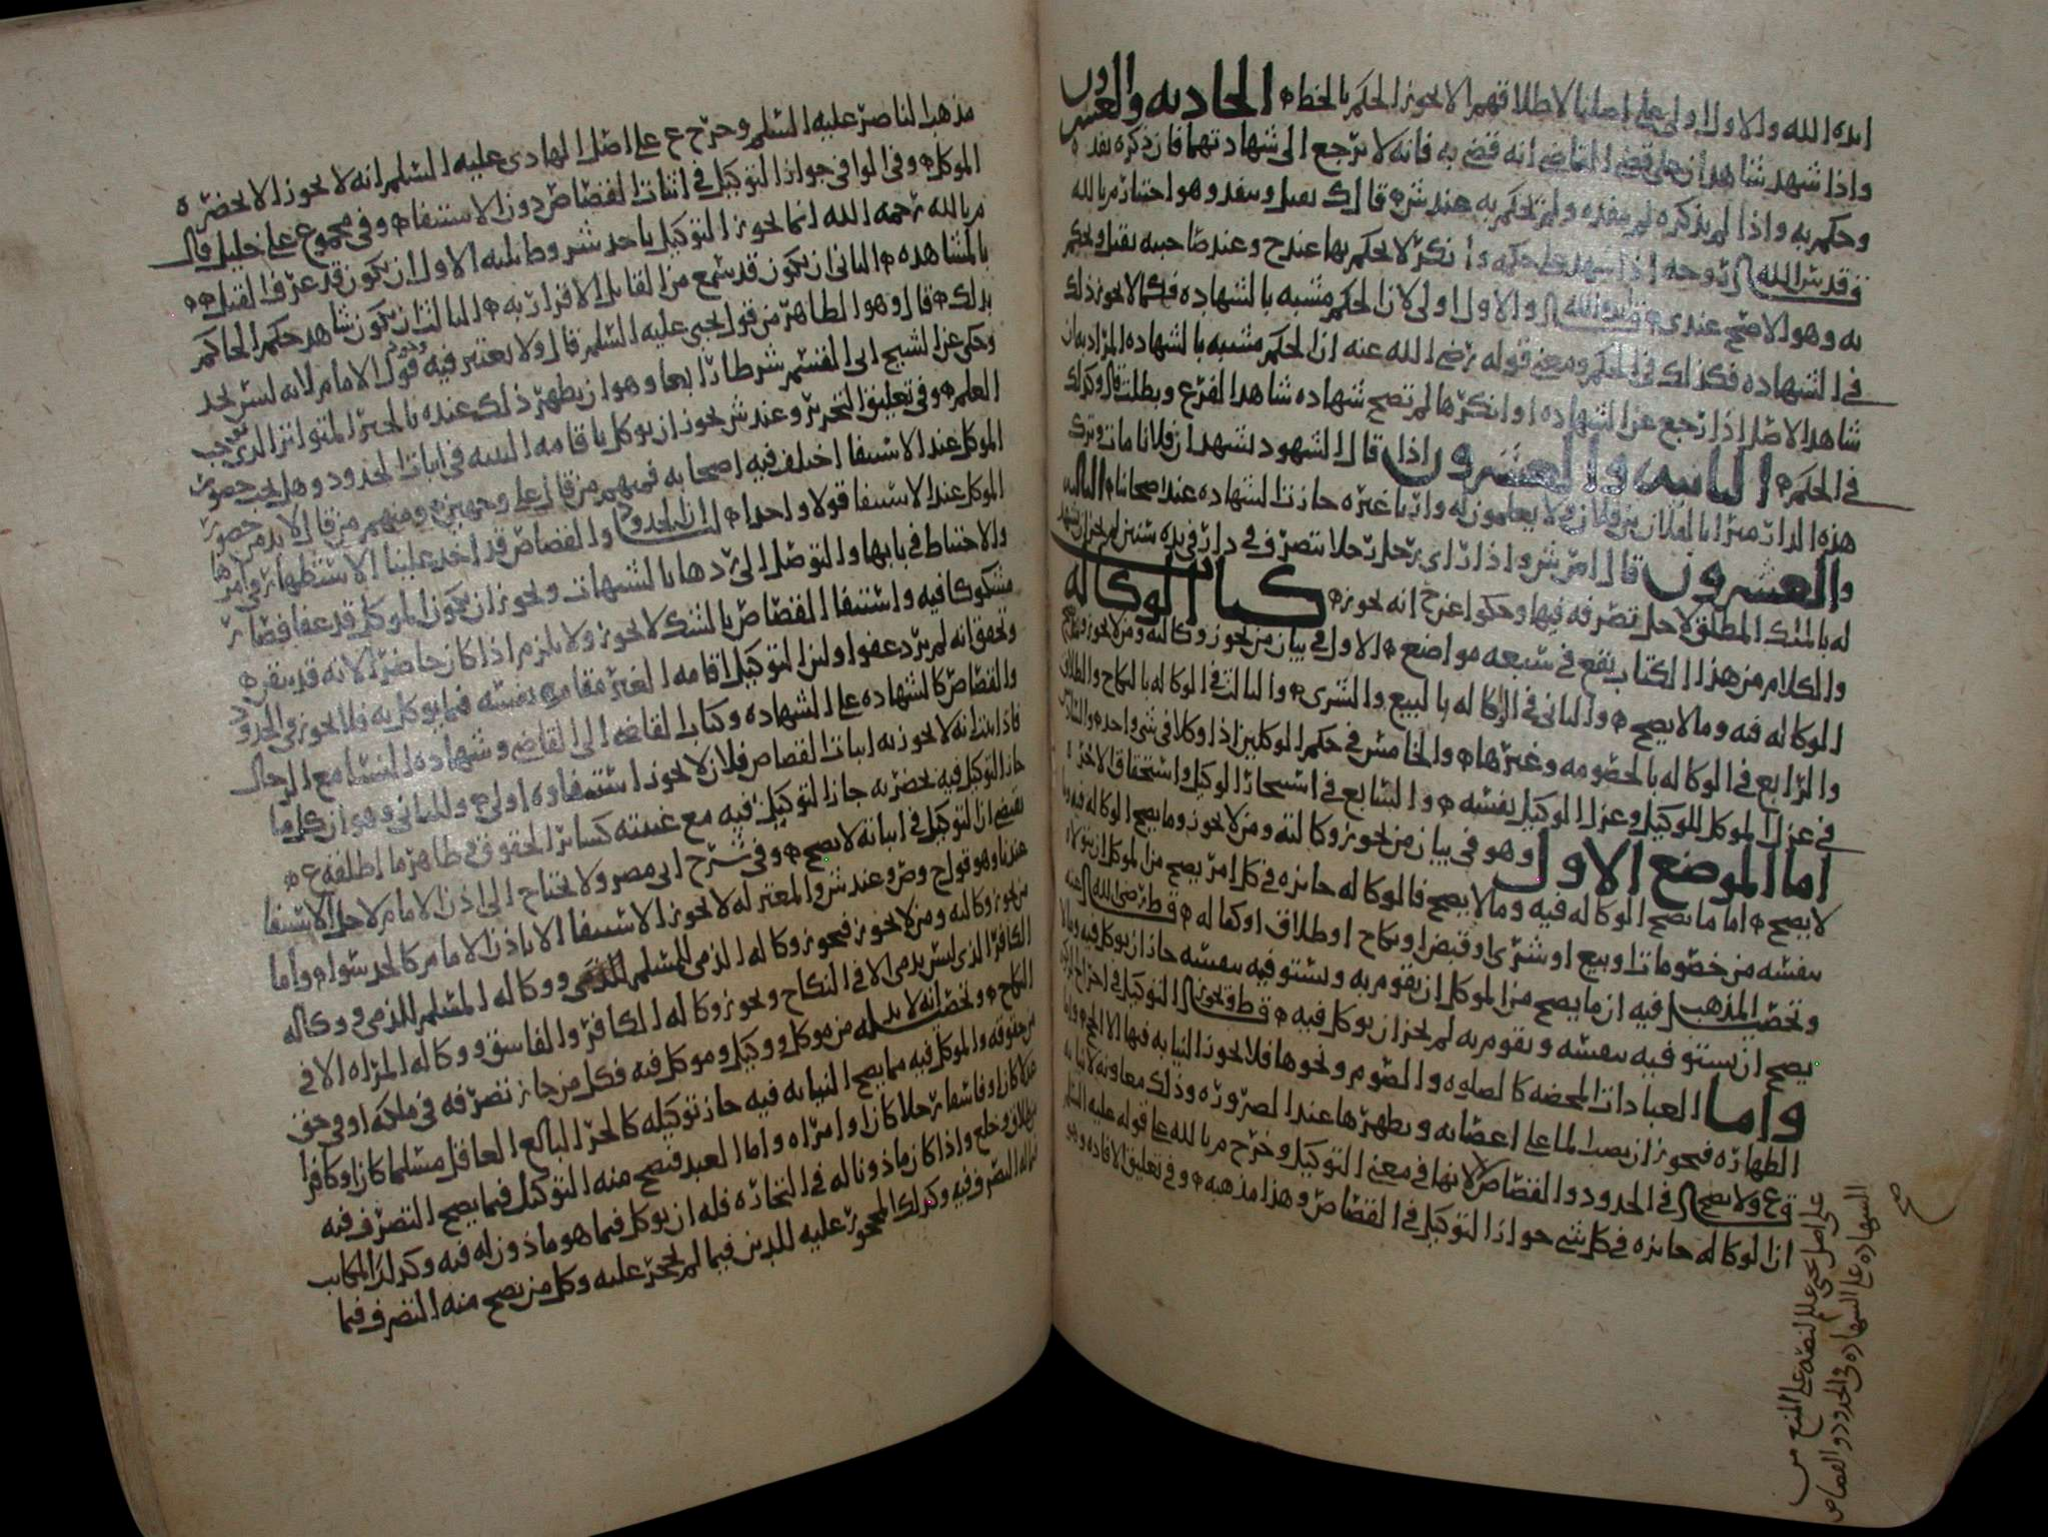 ايده الله والاول اولى على اصلنا لاطلاقهم الا يجوز الحكم بالخط الحاديه والعشرون
واذا شهد شاهدان على قضى القاضي انه قضى به فانه لا يرجع الى شهادتهما فان ذكره نفذه
وحكم به واذا لم يذكره لم ينفذه ولم يحكم به عند ش قال ك يقبل وينفذ وهو اختيار م بالله
قدس الله روحه اذا شهد على حكمه وانكر لا يحكم بها عند ح وعند صاحبيه يقبل ويحكم
به وهو الاصح عندي والاول اولى لان الحكم مشبه بالشهاده فكما لا يجوز ذلك
في الشهاده فكذلك في الحكم ومعنى قوله رضي الله عنه ان الحكم مشبه بالشهاده المراد به ان
شاهد الاصل اذا رجع عن الشهاده او انكرها لم تصح شهاده شاهد الفرع وبطلت قال وكذلك
في الحكم الثانيه والعشرون اذا قال الشهود نشهد ان فلانا مات وترك
هذه الدار ميراثا لفلان بن فلان ولا يعلمون له وارثا غيره جازت الشهاده عند اصحابنا الثالثه
والعشرون قال واذا راى رجل رجلا يتصرف في دار في يده سنين لم يجز ان يشهد
له بالملك المطلق لاجل تصرفه فيها وحكوا عن ح انه يجوز كتاب الوكاله
والكلام من هذا الكتاب يقع في سبعه مواضع الاول في بيان من يجوز وكالته ومن لا يجوز وما يصح
الوكاله فيه وما لا يصح والثاني في الوكاله بالبيع والشرى والثالث في الوكاله بالنكاح والطلاق
والرابع في الوكاله بالخصومه وغيرها والخامس في حكم الوكيلين اذا وكلا في شي واحد والسادس
في عزل الموكل للوكيل وعزل الوكيل نفسه والسابع في استيجار الوكيل واستحقاق الاجره
اما الموضع الاول وهو في بيان من يجوز وكالته ومن لا يجوز وما يصح الوكاله فيه وما
لا يصح اما ما يصح الوكاله فيه وما لا يصح فالوكاله جائزه في كل امر يصح من الموكل ان يتولاه
بنفسه من خصومات او بيع او شرى او قبض او نكاح او طلاق او كفاله قال ط رضي الله عنه
وتحصيل المذهب فيه ان ما يصح من الموكل ان يقوم به ويستوفيه بنفسه جاز ان يوكل فيه وما لا
يصح ان يستوفيه بنفسه ويقوم به لم يجز ان يوكل فيه التوكيل في اخراج الزكاه
واما العبادات المحضه كالصلوه والصوم ونحوها فلا يجوز النيابه فيها الا الحج واما
الطهاره فيجوز ان يصب الما على اعضائه ويطهرها عند الضروره وذلك معاونه لا نيابه
ق ع ولا يصح في الحدود والقصاص لانها في معنى التوكيل وخرج م بالله على قوله عليه السلم
ان الوكاله جائزه في كل شي جواز التوكيل في القصاص وهذا مذهبه وفي تعليق الافاده وهو
على اصل يحيى عليلم لنصه على المنع من
الشهاده على الشهاده في الحدود والقصاص
صح
مذهب الناصر عليه السلم وخرج ع على اصل الهادي عليه السلم انه لا يجوز الا بحضره
الموكل وفي الوافي جواز التوكيل في اثبات القصاص دون الاستيفا وفي مجموع علي خليل قال
م بالله رحمه الله انما يجوز التوكيل باحد شروط ثلثه الاول ان يكون قد عرف القتل
بالمشاهده الثاني ان يكون قد سمع من القاتل الاقرار به الثالث ان يكون شاهد حكم الحاكم
بذلك قال وهو الظاهر من قول يحيى عليه السلم قال ولا يعتبر فيه قول الامام لانه ليس بحد
وحكى عن الشيخ ابي القسم شرطا رابعا وهو ان يظهر ذلك عنده بالخبر المتواتر الذي يوجب
العلم وفي تعليق التحرير وعند ش يجوز ان يوكل باقامه البينه في اثبات الحدود وهل يجب حضور
الموكل عند الاستيفا اختلف فيه اصحابه فمنهم من قال على وجهين ومنهم من قال لا بد من حضور
الموكل عند الاستيفا قولا واحدا لنا ان الحدود والقصاص قد اخذ علينا الاستظهار في امرها
والاحتياط في بابها والتوصل الى ردها بالشبهات ويجوز ان يكون الموكل قد عفا فصار
مشكوكا فيه واستيفا القصاص بالشك لا يجوز ولا يلزم اذا كان حاضرا لانه قد تيقن
وتحقق انه لم يرد عفوا ولان التوكيل اقامه الغير مقام نفسه فيما يوكل به فلا يجوز في الحدود
والقصاص كالشهاده على الشهاده وكتاب القاضي الى القاضي وشهاده النسا مع الرجال
فاذا ثبت انه لا يجوز به اثبات القصاص فلان لا يجوز استيفاوه اولى والثاني وهو ان كل ما
جاز التوكيل فيه بحضرته جاز التوكيل فيه مع غيبته كسائر الحقوق في ظاهر ما اطلقه ع
يقتضي ان التوكيل في اثباته لا يصح وفي شرح ابي مضر ولا يحتاج الى اذن الامام لاجل الاستيفا
عندنا وهو قول ح وص وعند ش والمعتزله لا يجوز الاستيفا الا باذن الامام كالحد سوا واما
من يجوز وكالته ومن لا يجوز فيجوز وكاله الذمي للمسلم ووكاله المسلم للذمي ووكاله
الكافر الذي ليس بذمي الا في النكاح ويجوز وكاله الكافر والفاسق ووكاله المراه الا في
النكاح وتحصيله انه لا بد من موكل ووكيل وموكل فيه فكل من جاز تصرفه في ملكه او في حق
من حقوقه والموكل فيه مما يصح النيابه فيه جاز توكيله كالحر البالغ العاقل مسلما كان او كافرا
عدلا كان او فاسقا رجلا كان او امراه واما العبد فيصح منه التوكيل فيما يصح التصرف فيه
من طلاق وخلع واذا كان ماذونا له في التجاره فله ان يوكل فيما هو ماذون له فيه وكذلك المكاتب
التصرف فيه وكذلك المحجور عليه للدين فيما لم يحجر عليه وكل من يصح منه التصرف فيما